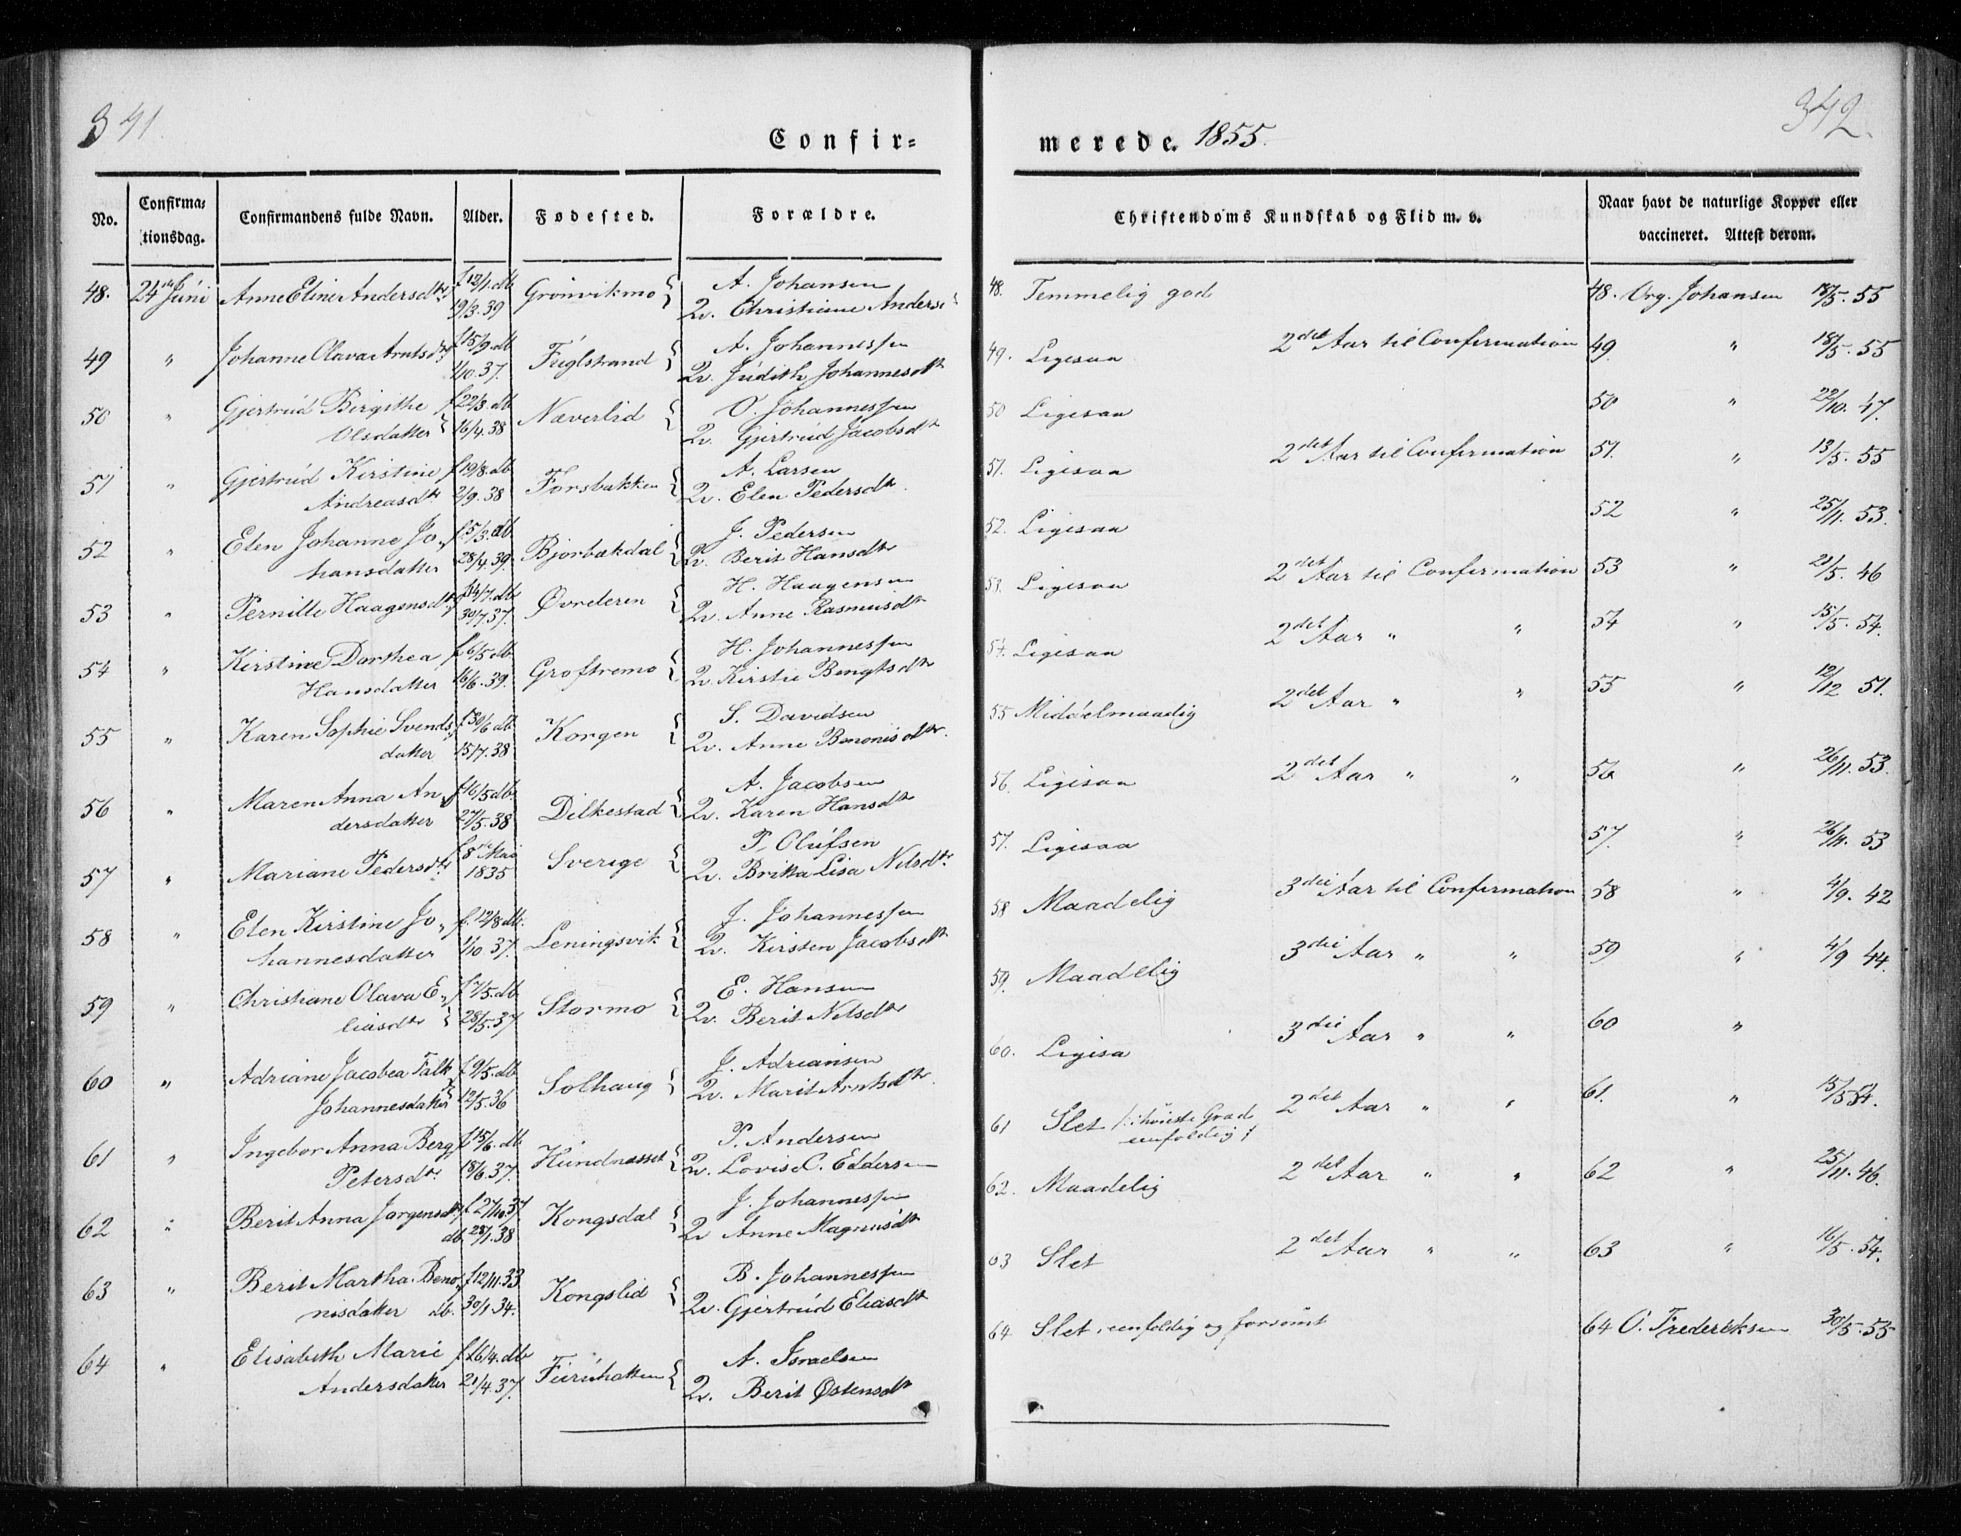 341
342.
Confir=
merede. 1855.
No.
Confirma=
tionsdag.
Confirmandens fulde Navn.
Alder.
Fødested.
Forældre.
Christendoms Kundskab og Flid m. v.
Naar havt de naturlige Kopper eller
vaccineret. Attest derom.
48. 24de Juni Anne Eline Andersdtr. f 12/1. db Grønvikmo A. Johansen
9/3. 39 Qv. Christiane Anders
48. Temmelig god 48. Org. Johansen 18/5. 55
49 " Johanne Olava Arntsdtr. f 15/9. db Fuglstrand A. Johannessen
1/10. 37. Qv. Judith Johannesdtr
49. Ligesaa 2det Aar til Confirmation 49 " 18/5. 55
50 " Gjertrud Birgithe f 22/3. db Næverlid O. Johannessen
Olsdatter 16/4. 38 Qv. Gjertrud Jacobsdtr
50 Ligesaa 50 " 22/10. 47.
51 " Gjertrud Kirstine f 19/8. db Forsbakken A. Larsen
Andreasdtr 2/9. 38 Qv. Elen Pedersdtr.
51. Ligesaa 2det Aar til Confirmation 51. " 13/5. 55
52 " Elen Johanne Jo- f 5/3. db Bjorbækdal J. Pedersen
hansdatter 28/4. 39. Qv. Berit Hansdtr
52. Ligesaa 52 " 25/11. 53.
53 " Pernille Haagensdtr. f 24/7. db Øvrederen H. Haagensen
30/7. 37. Qv. Anne Rasmusdtr
53. Ligesaa 2det Aar til Confirmation 53 " 21/5. 46
54 " Kirstine Dorthea f 6/5 db Groftremo H. Johannessen
Hansdatter 16/6. 39. Qv. Kirstie Bengtsdtr
54. Ligesaa 2det Aar " " 54 " 15/5. 54.
55 " Karen Sophie Svends- f 30/6 db Korgen S. Davidsen
datter 15/7. 38 Qv. Anne Benonisdtr.
55 Middelmaadig 2det Aar " " 55 " 12/12 51.
56 " Maren Anna An- f 16/5 db Dilkestad A. Jacobsen
dersdatter 27/5. 38 Qv. Karen Hansdtr
56. Ligesaa 2det Aar " " 56 " 26/11. 53.
57 " Mariane Pedersdtr. f 8de Mai Sverige P. Olufsen
1835 Qv. Britta Lisa Nelsdtr.
57. Ligesaa 57. " 26/11. 53
58 " Elen Kirstine Jo- f. 12/8 db. Leningsvik J. Johannessen
hannesdatter 1/10 37. Qv. Kirsten Jacobsdtr
58 Maadelig 3die Aar til Confirmation 58 " 4/9. 42
59 " Christiane Olava E- f 7/5. db Stormo E. Hansen
liasdtr 28/5. 37 Qv. Berit Nelsdtr
59. Maadelig 3die Aar " " 59 " 4/9 44.
60 " Adriane Jacobea Falk f 9/5. db Solhaug J. Adriansen
Johannesdatter 12/5. 36 Qv. Marit Arntsdtr.
60. Ligesa 3die Aar " " 60 "
61 " Ingebor Anna Berg f 15/6. db Hundnæsset P. Andersen
Petersdtr. 18/6. 37. Qv. Lovise C. Eddersen
61 Slet /: i høieste Grad 2det Aar " " 61. " 15/5 54.
eenfoldig :/
62 " Berit Anna Jørgensdtr f 27/10. 37 Kongsdal J. Johannessen
db 28/1. 38 Qv Anne Magnusdtr
62. Maadelig 2det Aar " " 62 " 25/11. 46.
63 " Berit Martha Beno- f 12/11. 33 Kongslid B. Johannessen
nisdatter db. 30/1 34. Qv. Gjertrud Eliasdtr
63 Slet 2det Aar " " 63 " 16/5. 54.
64 " Elisabeth Marie f 16/4. db Furuhatten A. Israelsen
Andersdatter 21/4. 37. Qv. Berit Østensdtr
64 Slet, eenfoldig og forsømt 64 O. Frederiksen 30/5. 55